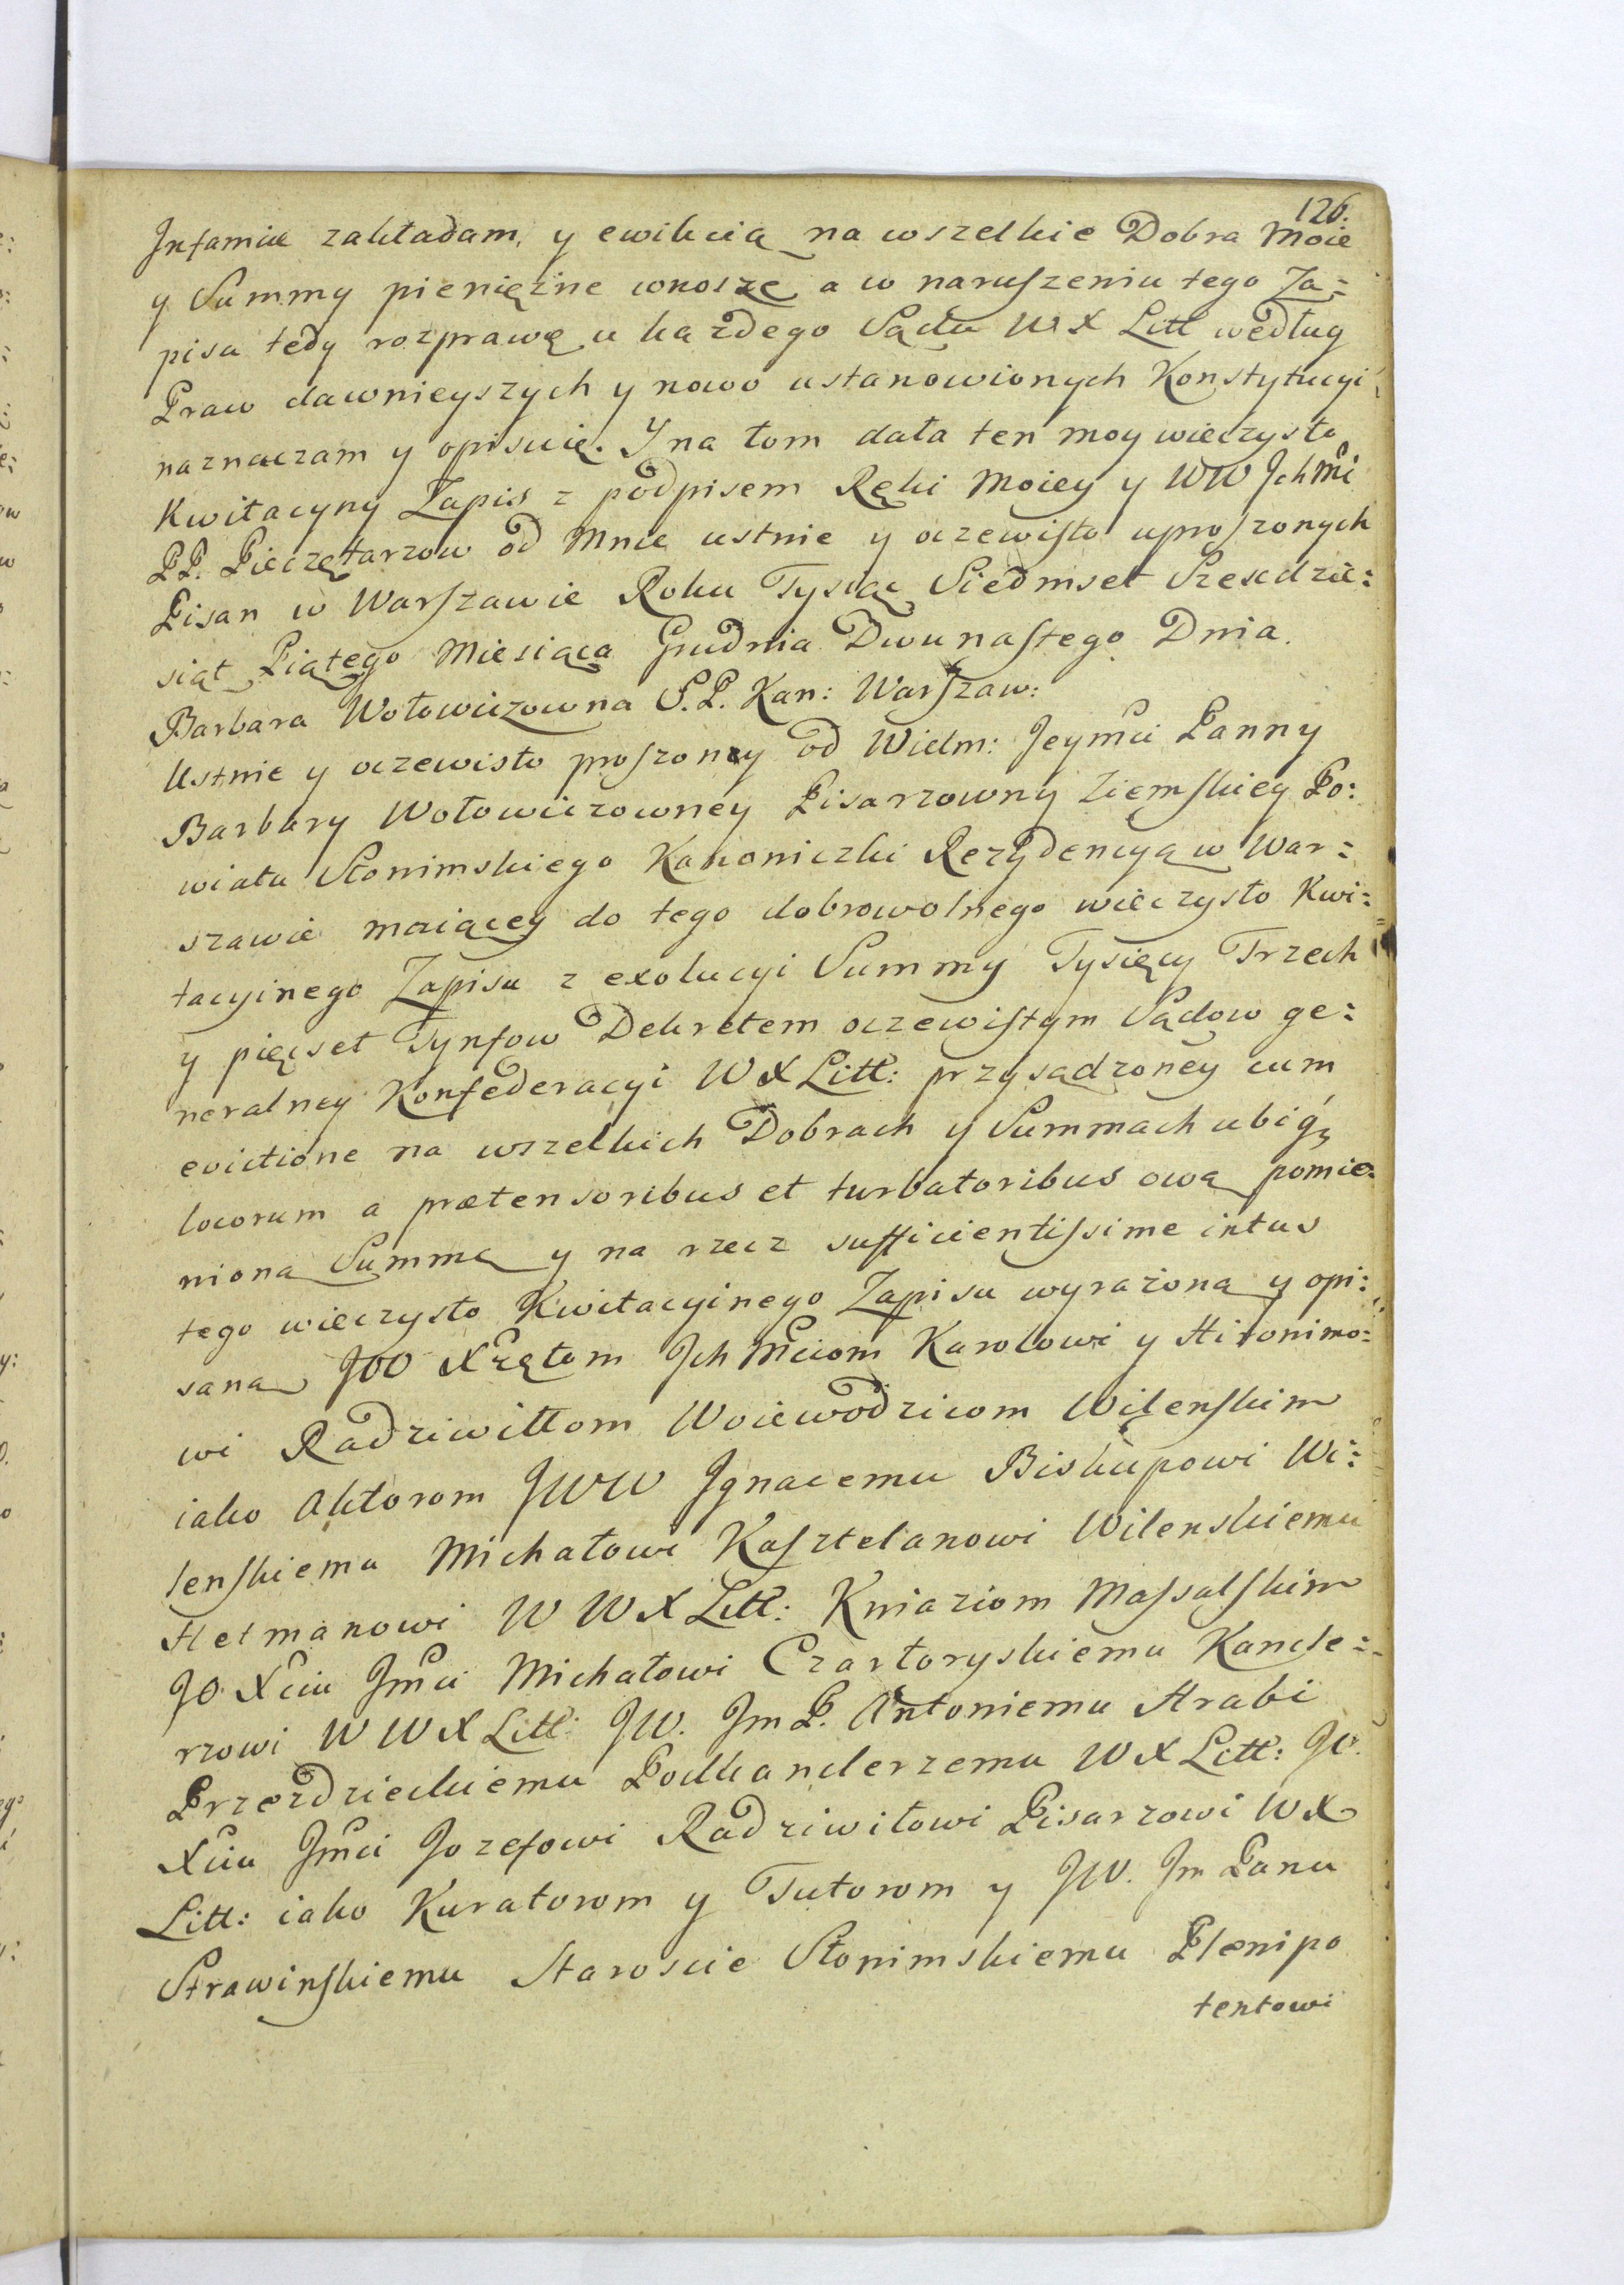 126.
Infamiæ zakładam, y ewikcią na wszelkie Dobra Moie
y Summy pieniężne wnoszę a w naruszeniu tego Za=
pisu tedy rozprawę u każdego Sądu W X Litt według
Praw dawnieyszych y nowo ustanowionych Konstytucyi
naznaczam y opisuię. Y na tom dała ten moy wieczysto
Kwitacyny Zapis z podpisem Ręki Moiey y WW Jchmci
PP. Pieczętarzow od Mnie ustnie y oczewisto uproszonych
Pisan w Warszawie Roku Tysiąc Siedmset Szescdzie=
siąt Piątego Miesiąca Grudnia Dwunastego Dnia.
Barbara Wołowiczowna S. P. Kan: Warszaw:
Ustnie y oczewisto proszony od Wielm: Jeymci Panny
Barbary Wołowiczowney Pisarzowny Ziemskiey Po:
wiatu Słonimskiego Kanoniczki Rezydencyą w War=
szawie maiącey do tego dobrowolnego wieczysto Kwi=
tacyinego Zapisu z exolucyi Summy Tysięcy Trzech
y pięcset Tynfow Dekretem oczewistym Sądow ge=
neralney Konfederacyi W X Litt: przysądzoney cum
evictione na wszelkich Dobrach y Summach ubiq3
locorum a prætensoribus et turbatoribus ową pomie=
nioną Summę y na rzecz sufficientissime intus
tego wieczysto Kwitacyinego Zapisu wyrażoną y opi=
saną JOO Xżętom Jch Mciom Karolowi y Hironimo=
wi Radziwiłłom Woiewodzicom Wilenskim
iako Aktorom JWW Jgnacemu Biskupowi Wi=
lenskiemu Michałowi Kasztelanowi Wilenskiemu
Hetmanowi W W X Litt: Kniaziom Massalskim
JO Xciu Jmci Michałowi Czartoryskiemu Kancle=
rzowi W W X Litt: JW. Jm P. Antoniemu Hrabi
Przezdzieckiemu Podkanclerzemu W X Litt: JO.
Xciu Jmci Jozefowi Radziwiłowi Pisarzowi W X
Litt: iako Kuratorom y Tutorom y JW. Jm Panu
Strawinskiemu Staroscie Słonimskiemu Plenipo
tentowi